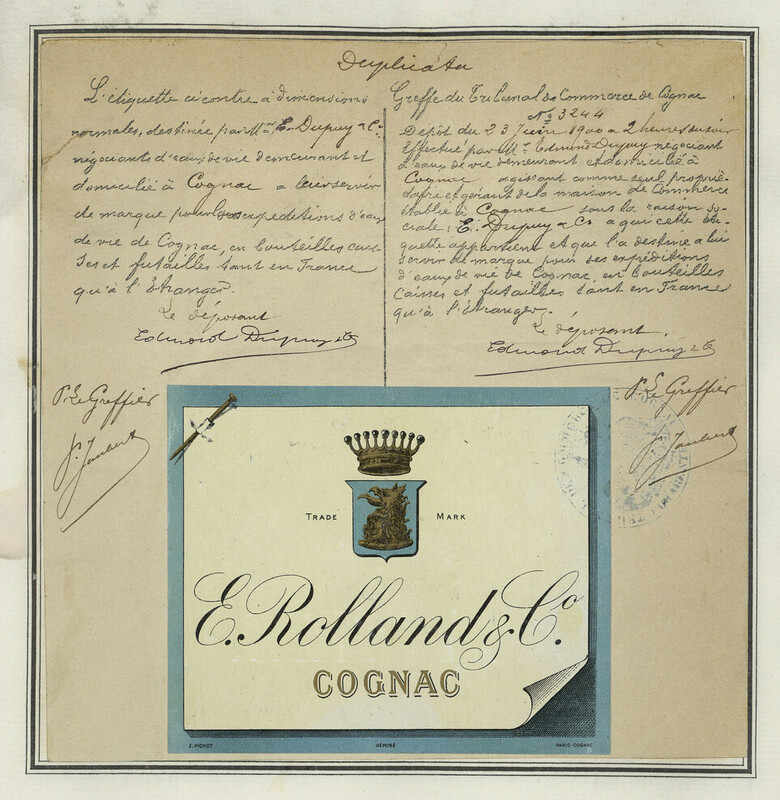 Duplicata
L'étiquette ci contre à dimensions
normales, destinée par Mr E. Dupuy & Co
négociants d'eaux de vie demeurant et
domicilié à Cognac a leur servir
de marque pour expéditions d'eaux
de vie de Cognac, en bouteilles cais
ses et futailles tant en France
qu'à l'étranger.
Le déposant
Edmond Dupuy & Co
P. Le Greffier
P. Jaubert
Greffe du Tribunal de Commerce de Cognac
No 3244
Dépôt du 23 Juin 1900 a 2 heures du soir
Effectué par Mr. Edmond Dupuy négociant
d'eaux de vie demeurant et domicilié à
Cognac agissant comme seul proprié-
taire et gérant de la maison de Commerce
établie à Cognac sous la raison so-
ciale: E. Dupuy & Co a qui cette éti-
quette appartient et que l'a destine a lui
servir de marque pour ses expéditions
d'eaux de vie de Cognac, en bouteilles
Caisses et futailles tant en France
qu'à l'étranger.
Le déposant
Edmond Dupuy & Co
P. Le Greffier
P. Jaubert
TRADE MARK
E. Rolland & Co.
COGNAC
E. PICHOT
DÉPOSÉ
PARIS-COGNAC